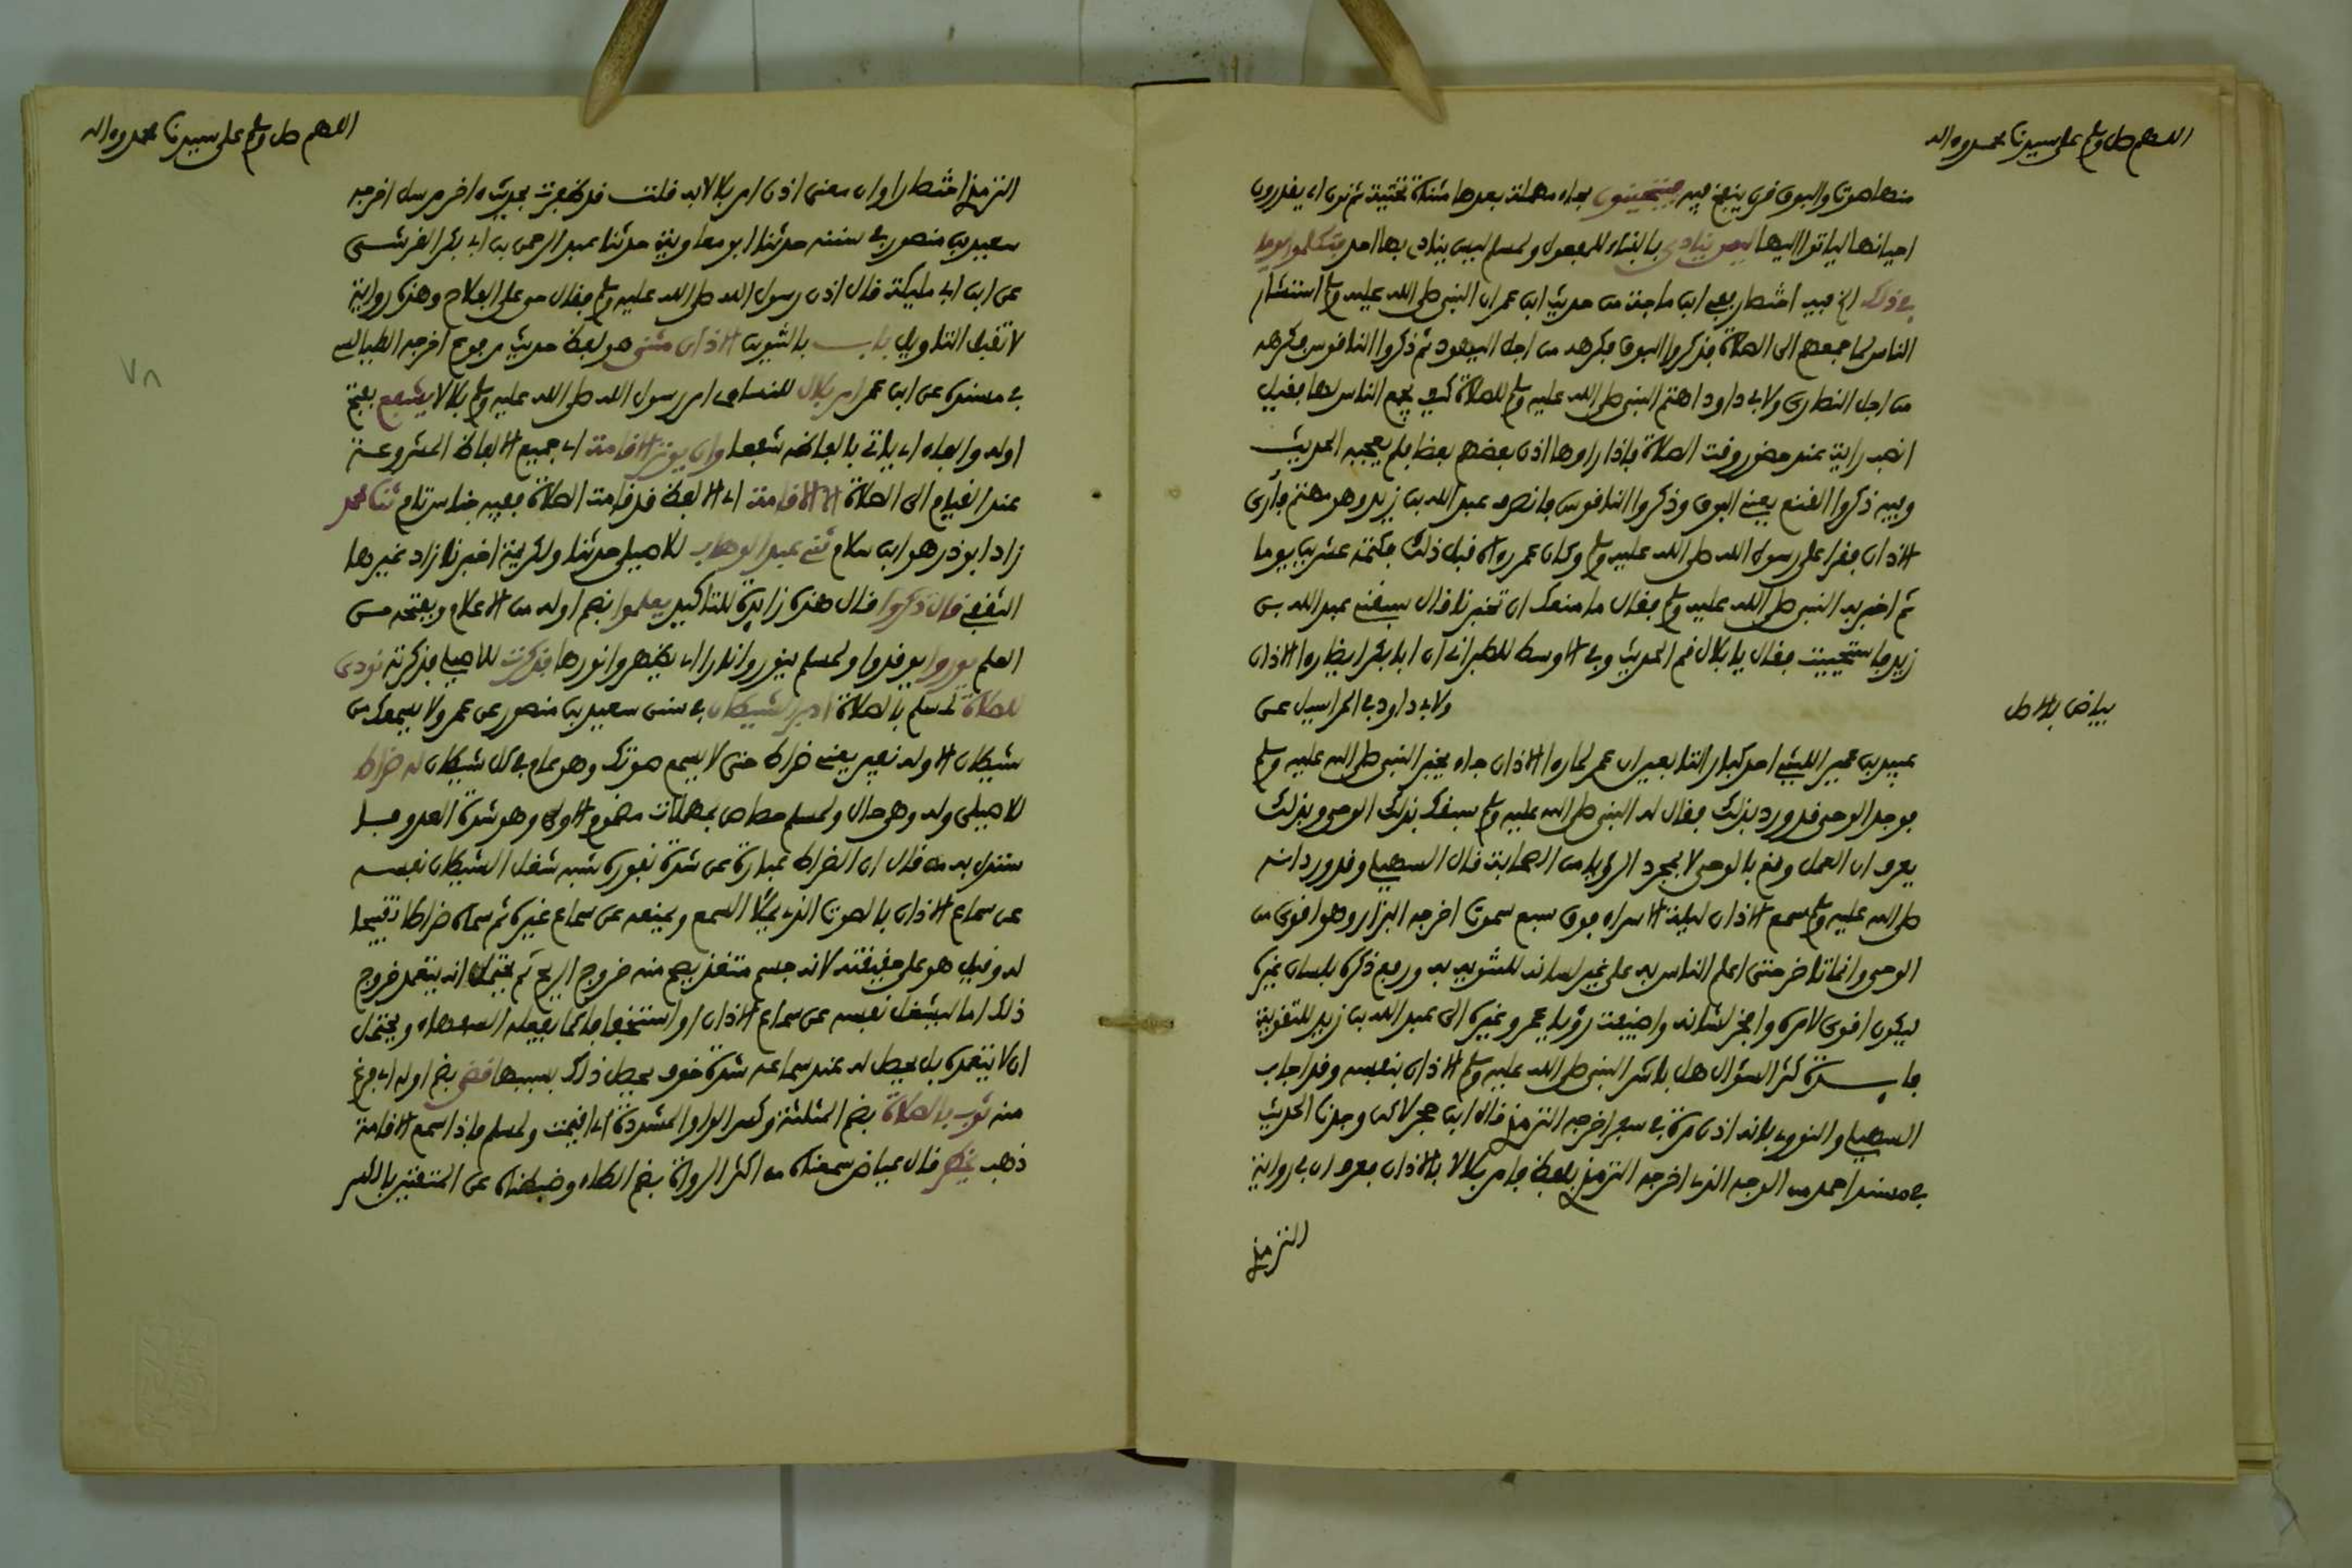 اللهم صل وسلم على سيدنا محمد وءاله
منهما صوت والبوق قرن ينفخ فيه فيتحينون بحاء مهملة بعدها مثناة تحتية ثم نون اي يقدرون
احيانها لياتوا اليها ليس ينادى بالبناء للمفعول ولمسلم ليس ينادي بها احد فتكلموا يوما
في ذلك الخ فيه اختصار ففي ابن ماجة من حديث ابن عمر ان النبي صلى الله عليه وسلم استشار
الناس لما يجمعهم الى الصلاة فذكروا البوق فكرهه من اجل اليهود ثم ذكروا الناقوس فكرهه
من اجل النصارى ولابي داود اهتم النبي صلى الله عليه وسلم للصلاة كيف يجمع الناس لها فقيل
انصب راية عند حضور وقت الصلاة فاذا راوها اذن بعضهم بعضا فلم يعجبه الحديث
وفيه ذكروا القنع يعني البوق وذكروا الناقوس فانصرف عبد الله بن زيد وهو مهتم فأرى
الاذان فغدا على رسول الله صلى الله عليه وسلم وكان عمر رءاه قبل ذلك فكتمه عشرين يوما
ثم اخبر به النبي صلى الله عليه وسلم فقال ما منعك ان تخبرنا قال سبقني عبد الله بن
زيد فاستحييت فقال يا بلال قم الحديث وفي الاوسط للطبراني ان ابا بكر ايضا رءا الاذان
ولابي داود في المراسيل عن
بياض بالاصل
عبيد بن عمير الليثي احد كبار التابعين ان عمر لما رءا الاذان جاء يخبر النبي صلى الله عليه وسلم
فوجد الوحي قد ورد بذلك فقال له النبي صلى الله عليه وسلم سبقك بذلك الوحي وبذلك
يعرف ان العمل وقع بالوحي لا بمجرد الرؤيا من الصحابة قال السهيلي وقد ورد انه
صلى الله عليه وسلم سمع الاذان ليلة الاسراء فوق سبع سموت اخرجه البزار وهو اقوى من
الوحي وانما تاخر حتى اعلم الناس به على غير لسانه للتنويه به ورفع ذكره بلسان غيره
ليكون اقوى لامره وافخر لشانه واضيفت رؤيا عمر وغيره الى عبد الله بن زيد للتقوية
فايدة كثر السؤال هل باشر النبي صلى الله عليه وسلم الاذان بنفسه وقد اجاب
السهيلي والنووي بانه اذن مرة في سفر اخرجه الترمذي قال ابن حجر لاكن وجدنا الحديث
في مسند احمد من الوجه الذي اخرجه الترمذي بلفظ فامر بلالا بالاذان فعرف ان في رواية
الترمذي
اللهم صل وسلم على سيدنا محمد وءاله
الترمذي اختصارا وان معنى اذن امر بلالا به قلت قد ظفرت بحديث ءاخر مرسل اخرجه
سعيد بن منصور في سننه حدثنا ابو معاوية حدثنا عبد الرحمن بن ابي بكر القرشي
عن ابن ابي مليكة قال اذن رسول الله صلى الله عليه وسلم فقال حي على الفلاح وهذه رواية
لا تقبل التاويل باب بالتنوين الاذان مثنى هو لفظ حديث مرفوع اخرجه الطيالسي
في مسنده عن ابن عمر امر بلال للنسائي امر رسول الله صلى الله عليه وسلم بلالا يشفع بفتح
اوله والفاء اي ياتي بالفاظه شفعا وان يوتر الاقامة اي جميع الالفاظ المشروعة
عند القيام الى الصلاة الا الاقامة اي الا لفظ قد قامت الصلاة ففيه جناس تام ثنا محمد
زاد ابو ذر هو ابن سلام ثني عبد الوهاب للاصيلي حدثنا ولكريمة اخبرنا زاد غيرها
الثقفي قال ذكروا قال هذه زايدة للتاكيد يعلموا بضم اوله من الاعلام وبفتحه من
العلم يوروا يوقدوا ولمسلم ينوروا نارا اي يظهروا نورها فذكرت للاصيلي فذكرته نودى
للصلاة لمسلم بالصلاة ادبر الشيطان في سنن سعيد بن منصور عن عمرو لا يسمعك من
شيطان الا وله نفير يعني ضراط حتى لا يسمع صوتك وهو عام في كل شيطان له ضراط
للاصيلي وله وهي حال ولمسلم حصاص بمهملات مضموم الاولى وهو شدة العدو فيما
ستدل به من قال ان الضراط عبارة عن شدة نفوره شبه شغل الشيطان نفسه
عن سماع الاذان بالصوت الذي يملا السمع ويمنعه عن سماع غيره ثم سماه ضراطا تقبيحا
له وقيل هو على حقيقته لانه جسم متغذ يصح منه خروج الريح ثم يحتمل انه يتعمد خروج
ذلك اما ليشغل نفسه عن سماع الاذان او استخفافا كما يفعله السفهاء ويحتمل
ان لا يتعمده بل يحصل له عند سماعه شدة خوف يحصل ذلك بسببها قضي بضم اوله اي فرغ
منه ثوب بالصلاة بضم المثلثة وكسر الواو المشددة اي اقيمت ولمسلم فاذا سمع الاقامة
ذهب يخطر قال عياض سمعناه من اكثر الرواة بضم الطاء وضبطناه عن المتقنين بالكسر
٧٨